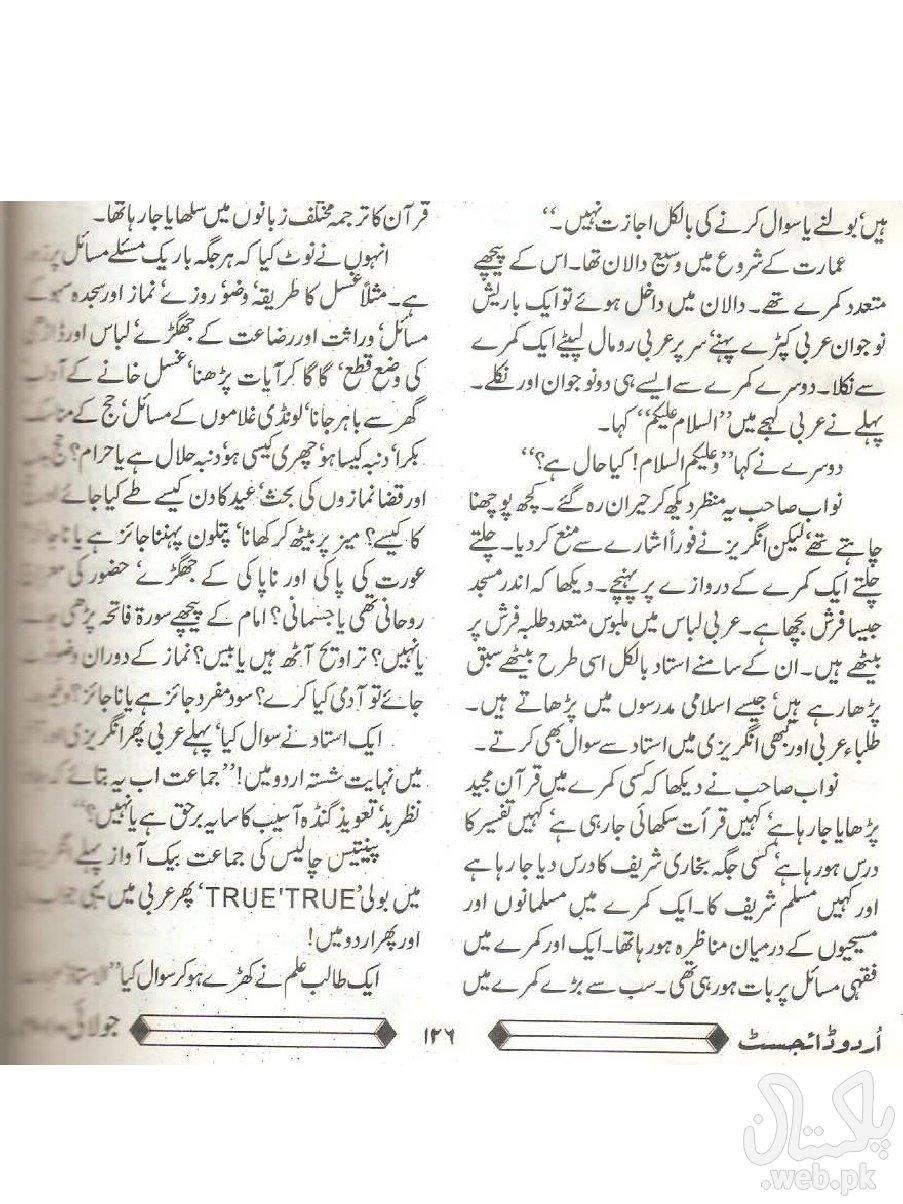 ہیں، بولنے یا سوال کرنے کی بالکل اجازت نہیں۔“
عمارت کے شروع میں وسیع دالان تھا۔ اس کے پیچھے
متعدد کمرے تھے۔ دالان میں داخل ہوئے تو ایک باریش
نوجوان عربی کپڑے پہنے، سر پر عربی رومال لپیٹے ایک کمرے
سے نکلا۔ دوسرے کمرے سے ایسے ہی دو نوجوان اور نکلے۔
پہلے نے عربی لہجے میں ”السلام علیکم“ کہا۔
دوسرے نے کہا ”وعلیکم السلام! کیا حال ہے؟“
نواب صاحب یہ منظر دیکھ کر حیران رہ گئے۔ کچھ پوچھنا
چاہتے تھے، لیکن انگریز نے فوراً اشارے سے منع کر دیا۔ چلتے
چلتے ایک کمرے کے دروازے پر پہنچے۔ دیکھا کہ اندر مسجد
جیسا فرش بچھا ہے۔ عربی لباس میں ملبوس متعدد طلبہ فرش پر
بیٹھے ہیں۔ ان کے سامنے استاد بالکل اسی طرح بیٹھے سبق
پڑھا رہے ہیں، جیسے اسلامی مدرسوں میں پڑھاتے ہیں۔
طلباء عربی اور کبھی انگریزی میں استاد سے سوال بھی کرتے۔
نواب صاحب نے دیکھا کہ کسی کمرے میں قرآن مجید
پڑھایا جا رہا ہے، کہیں قرأت سکھائی جا رہی ہے، کہیں تفسیر کا
درس ہو رہا ہے، کسی جگہ بخاری شریف کا درس دیا جا رہا ہے
اور کہیں مسلم شریف کا۔ ایک کمرے میں مسلمانوں اور
مسیحیوں کے درمیان مناظرہ ہو رہا تھا۔ ایک اور کمرے میں
فقہی مسائل پر بات ہو رہی تھی۔ سب سے بڑے کمرے میں
قرآن کا ترجمہ مختلف زبانوں میں سکھایا جا رہا تھا۔
انہوں نے نوٹ کیا کہ ہر جگہ باریک مسئلے مسائل پر زور
ہے۔ مثلاً غسل کا طریقہ، وضو، روزے، نماز اور سجدہ سہو کے
مسائل، وراثت اور رضاعت کے جھگڑے، لباس اور ڈاڑھی
کی وضع قطع، گا گا کر آیات پڑھنا، غسل خانے کے آداب
گھر سے باہر جانا، لونڈی غلاموں کے مسائل، حج کے مناسک
بکرا، دنبہ کیسا ہو، چھری کیسی ہو، دنبہ حلال ہے یا حرام؟ حج
اور قضا نمازوں کی بحث، عید کا دن کیسے طے کیا جائے اور
کا کیسے؟ میز پر بیٹھ کر کھانا، پتلون پہننا جائز ہے یا ناجائز
عورت کی پاکی اور ناپاکی کے جھگڑے، حضور کی معراج
روحانی تھی یا جسمانی؟ امام کے پیچھے سورۃ فاتحہ پڑھی جائے
یا نہیں؟ تراویح آٹھ ہیں یا بیس؟ نماز کے دوران وضو
جائے تو آدمی کیا کرے؟ سود مفرد جائز ہے یا ناجائز؟ وغیرہ
ایک استاد نے سوال کیا، پہلے عربی پھر انگریزی اور
میں نہایت شستہ اردو میں! ”جماعت اب یہ بتائے کہ
نظر بد، تعویذ گنڈہ آسیب کا سایہ برحق ہے یا نہیں؟“
پینتیس چالیس کی جماعت بیک آواز پہلے انگریزی
میں بولی ’TRUE'TRUE‘ پھر عربی میں یہی جواب
اور پھر اردو میں!
ایک طالب علم نے کھڑے ہو کر سوال کیا ”الاستاذ
اُردو ڈائجسٹ ۱۲۶ جولائی
پاکستان
.web.pk